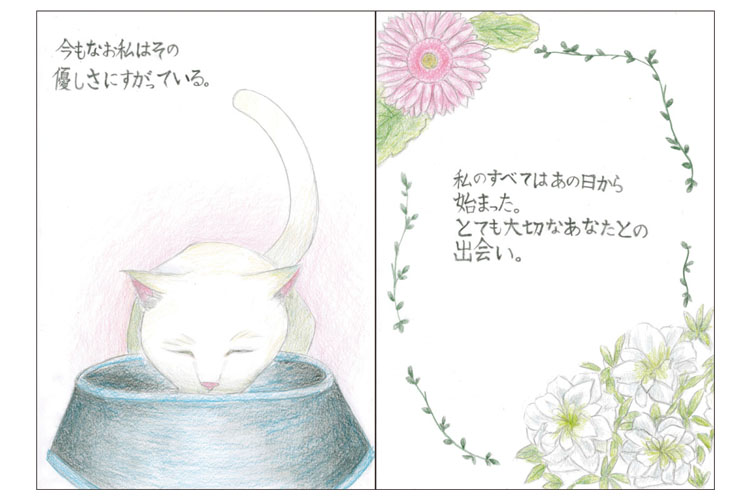 今もなお私はその
優しさにすがっている。
私のすべてはあの日から
始まった。
とても大切なあなたとの
出会い。